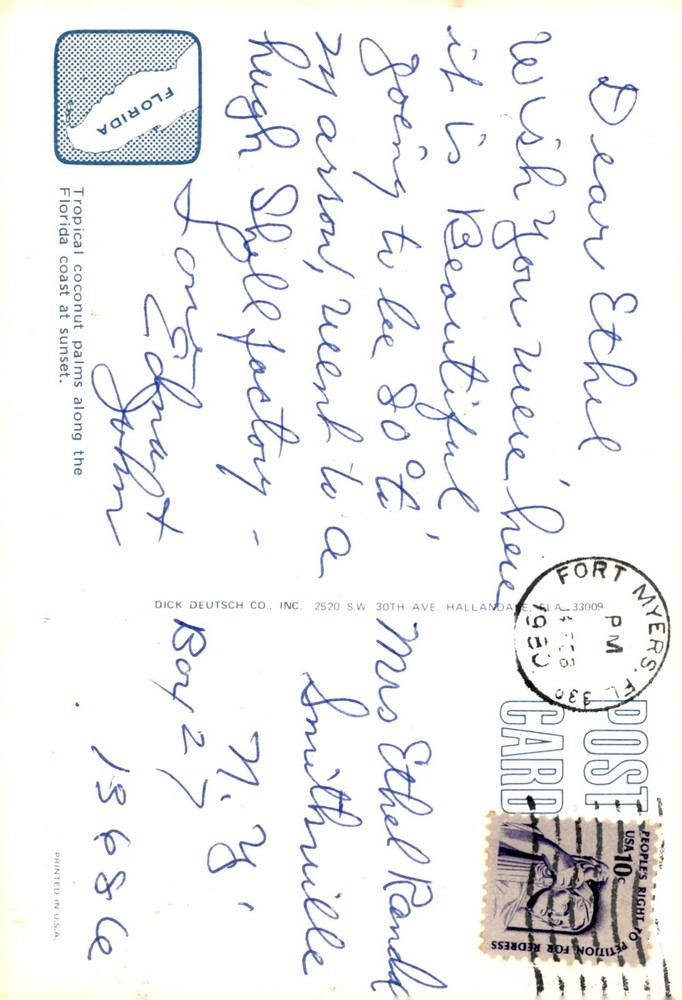 Dear Ethel
Wish you were' here
it is Beautiful
going to be 80° to'
marrow, went to a
hugh Shell factory -
Love
Edna +
John
FLORIDA
Tropical coconut palms along the
Florida coast at sunset.
DICK DEUTSCH CO., INC. 2520 S.W. 30TH AVE. HALLANDALE, FLA. 33009
FORT MYERS, FL 339
PM
14 FEB
1980
POST
CARD
PEOPLE'S RIGHT TO PETITION FOR REDRESS
USA 10c
Mrs Ethel Rand
Smithville
N.Y.
Box 27
13686
PRINTED IN U.S.A.